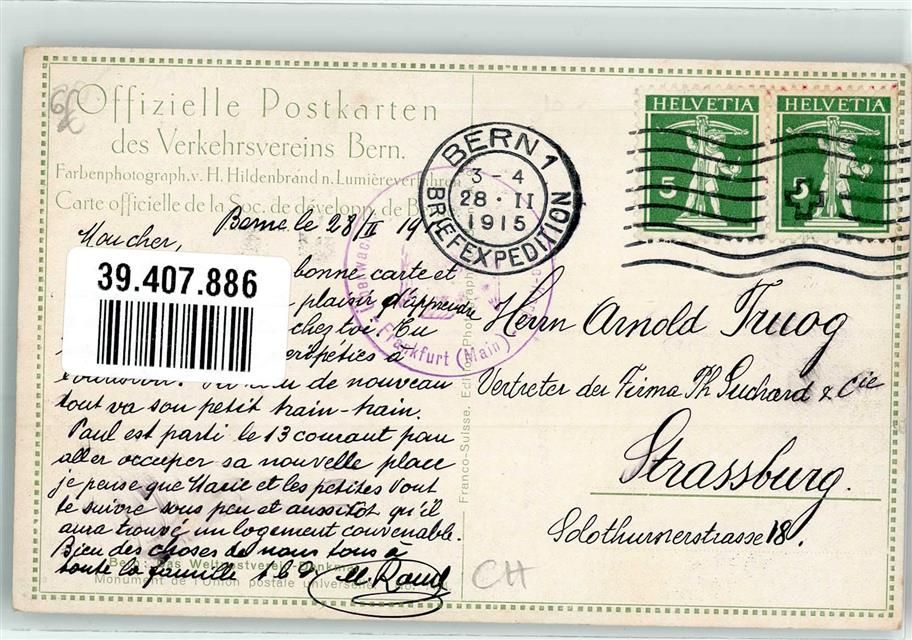 Offizielle Postkarten
des Verkehrsvereins Bern.
Farbenphotograph. v. H. Hildenbrand n. Lumièreverfahren
Carte officielle de la Soc. de développ. de B
Berne le 28/II 19
Mon cher,
bonne carte et
plaisir d'apprendre
chez toi. Tu
péripéties à
de nouveau
tout va son petit train-train.
Paul est parti le 13 courant pour
aller occuper sa nouvelle place
je pense que Marie et les petites vont
le suivre sous peu et aussitôt qu'il
aura trouvé un logement convenable.
Bien des choses de nous tous à
toute la famille
Bern: Das Weltpostverein-Denkmal
Monument de l'Union postale universelle
39.407.886
BERN 1
3-4
28·II
1915
BRIEFEXPEDITION
Frankfurt (Main)
HELVETIA
5
HELVETIA
5
Franco-Suisse, Edition Photograph
Herrn Arnold Truog
Vertreter der Firma Ph. Suchard & Cie
Strassburg.
Solothurnerstrasse 18.
CH